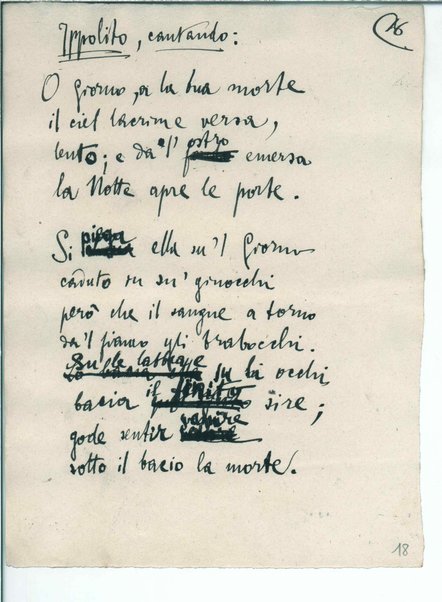 16
Ippolito, cantando:
O Giorno, a la tua morte
il ciel lacrime versa,
lento; e da l' ostro emersa
la Notte apre le porte.
Si piega ella su 'l Giorno
caduto su su' ginocchi
però che il sangue a torno
da 'l fianco gli trabocchi.
Su le labbra e su li occhi
bacia il ferito sire;
gode sentir venire
sotto il bacio la morte.
18